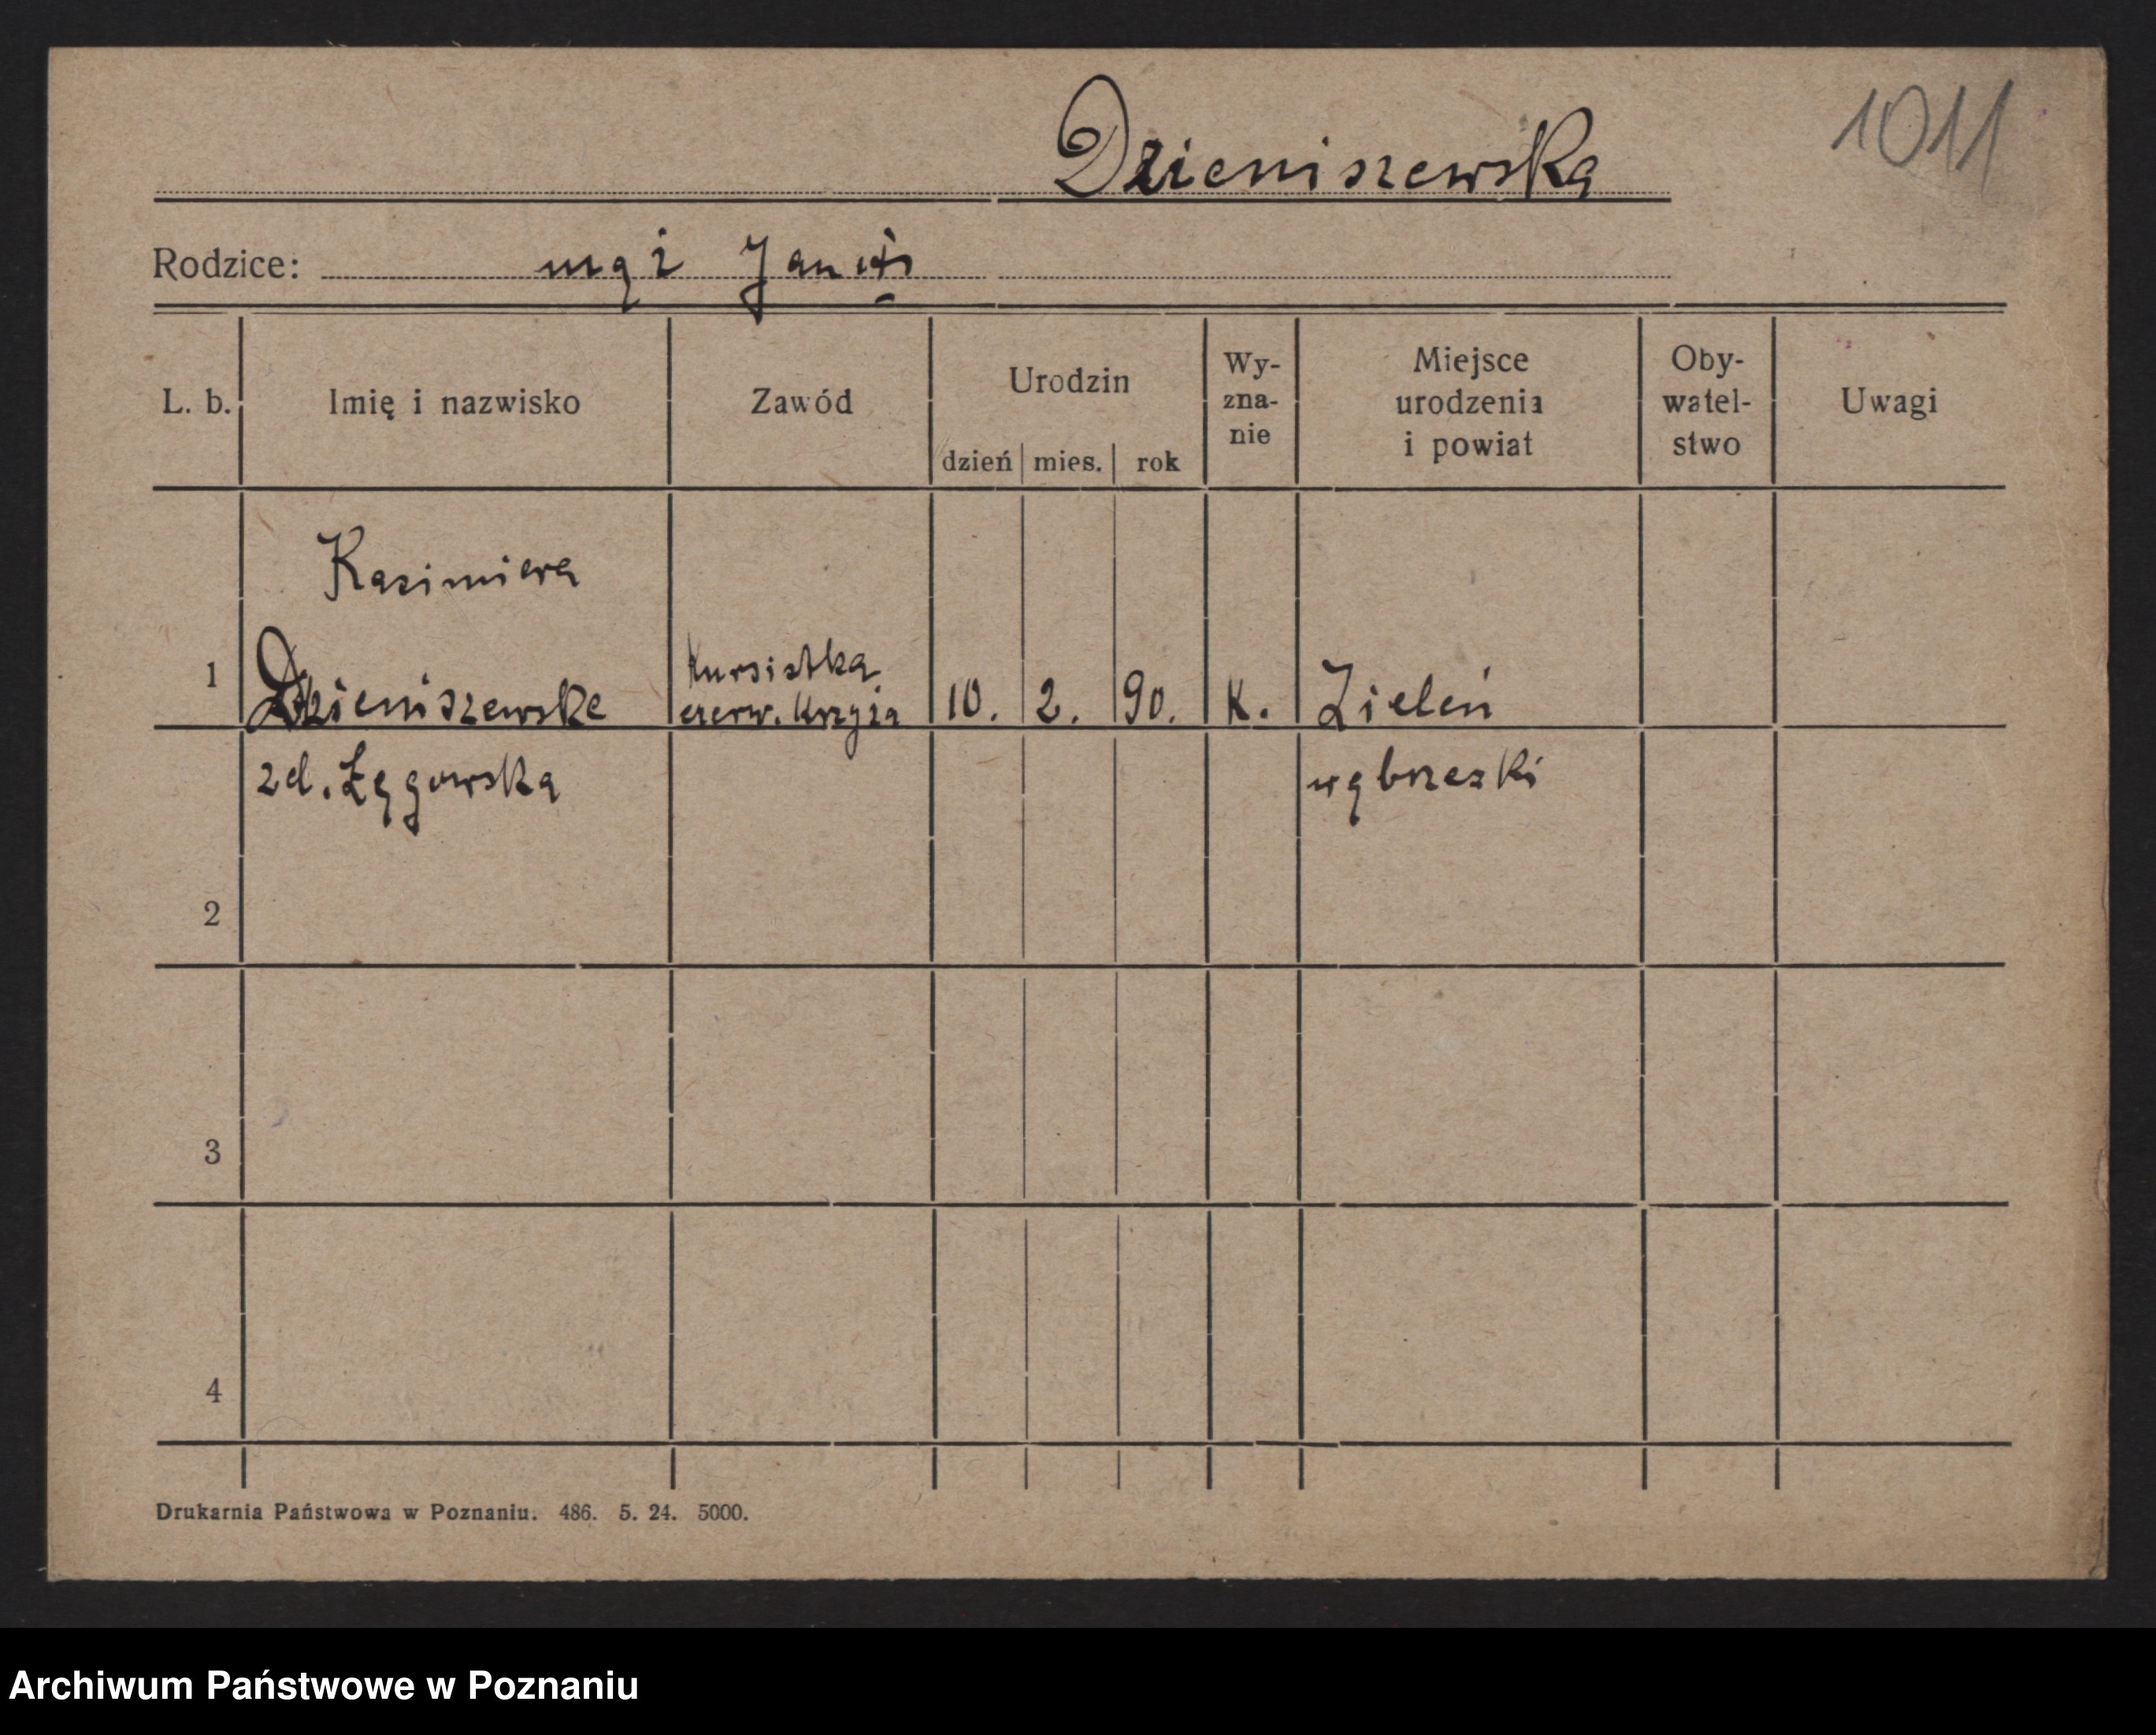 1011
Dzieniszewska
Rodzice: mąż Jan
L. b. Imię i nazwisko Zawód Urodzin dzień mies. rok Wy-zna-nie Miejsce urodzenia i powiat Oby-watel-stwo Uwagi
Kazimiera
1 Dzieniszewska Kursistka czerw. Krzyża 10. 2. 90. K. Zieleń
zd. Łęgowska wąbrzeski
2
3
4
Drukarnia Państwowa w Poznaniu. 486. 5. 24. 5000.
Archiwum Państwowe w Poznaniu